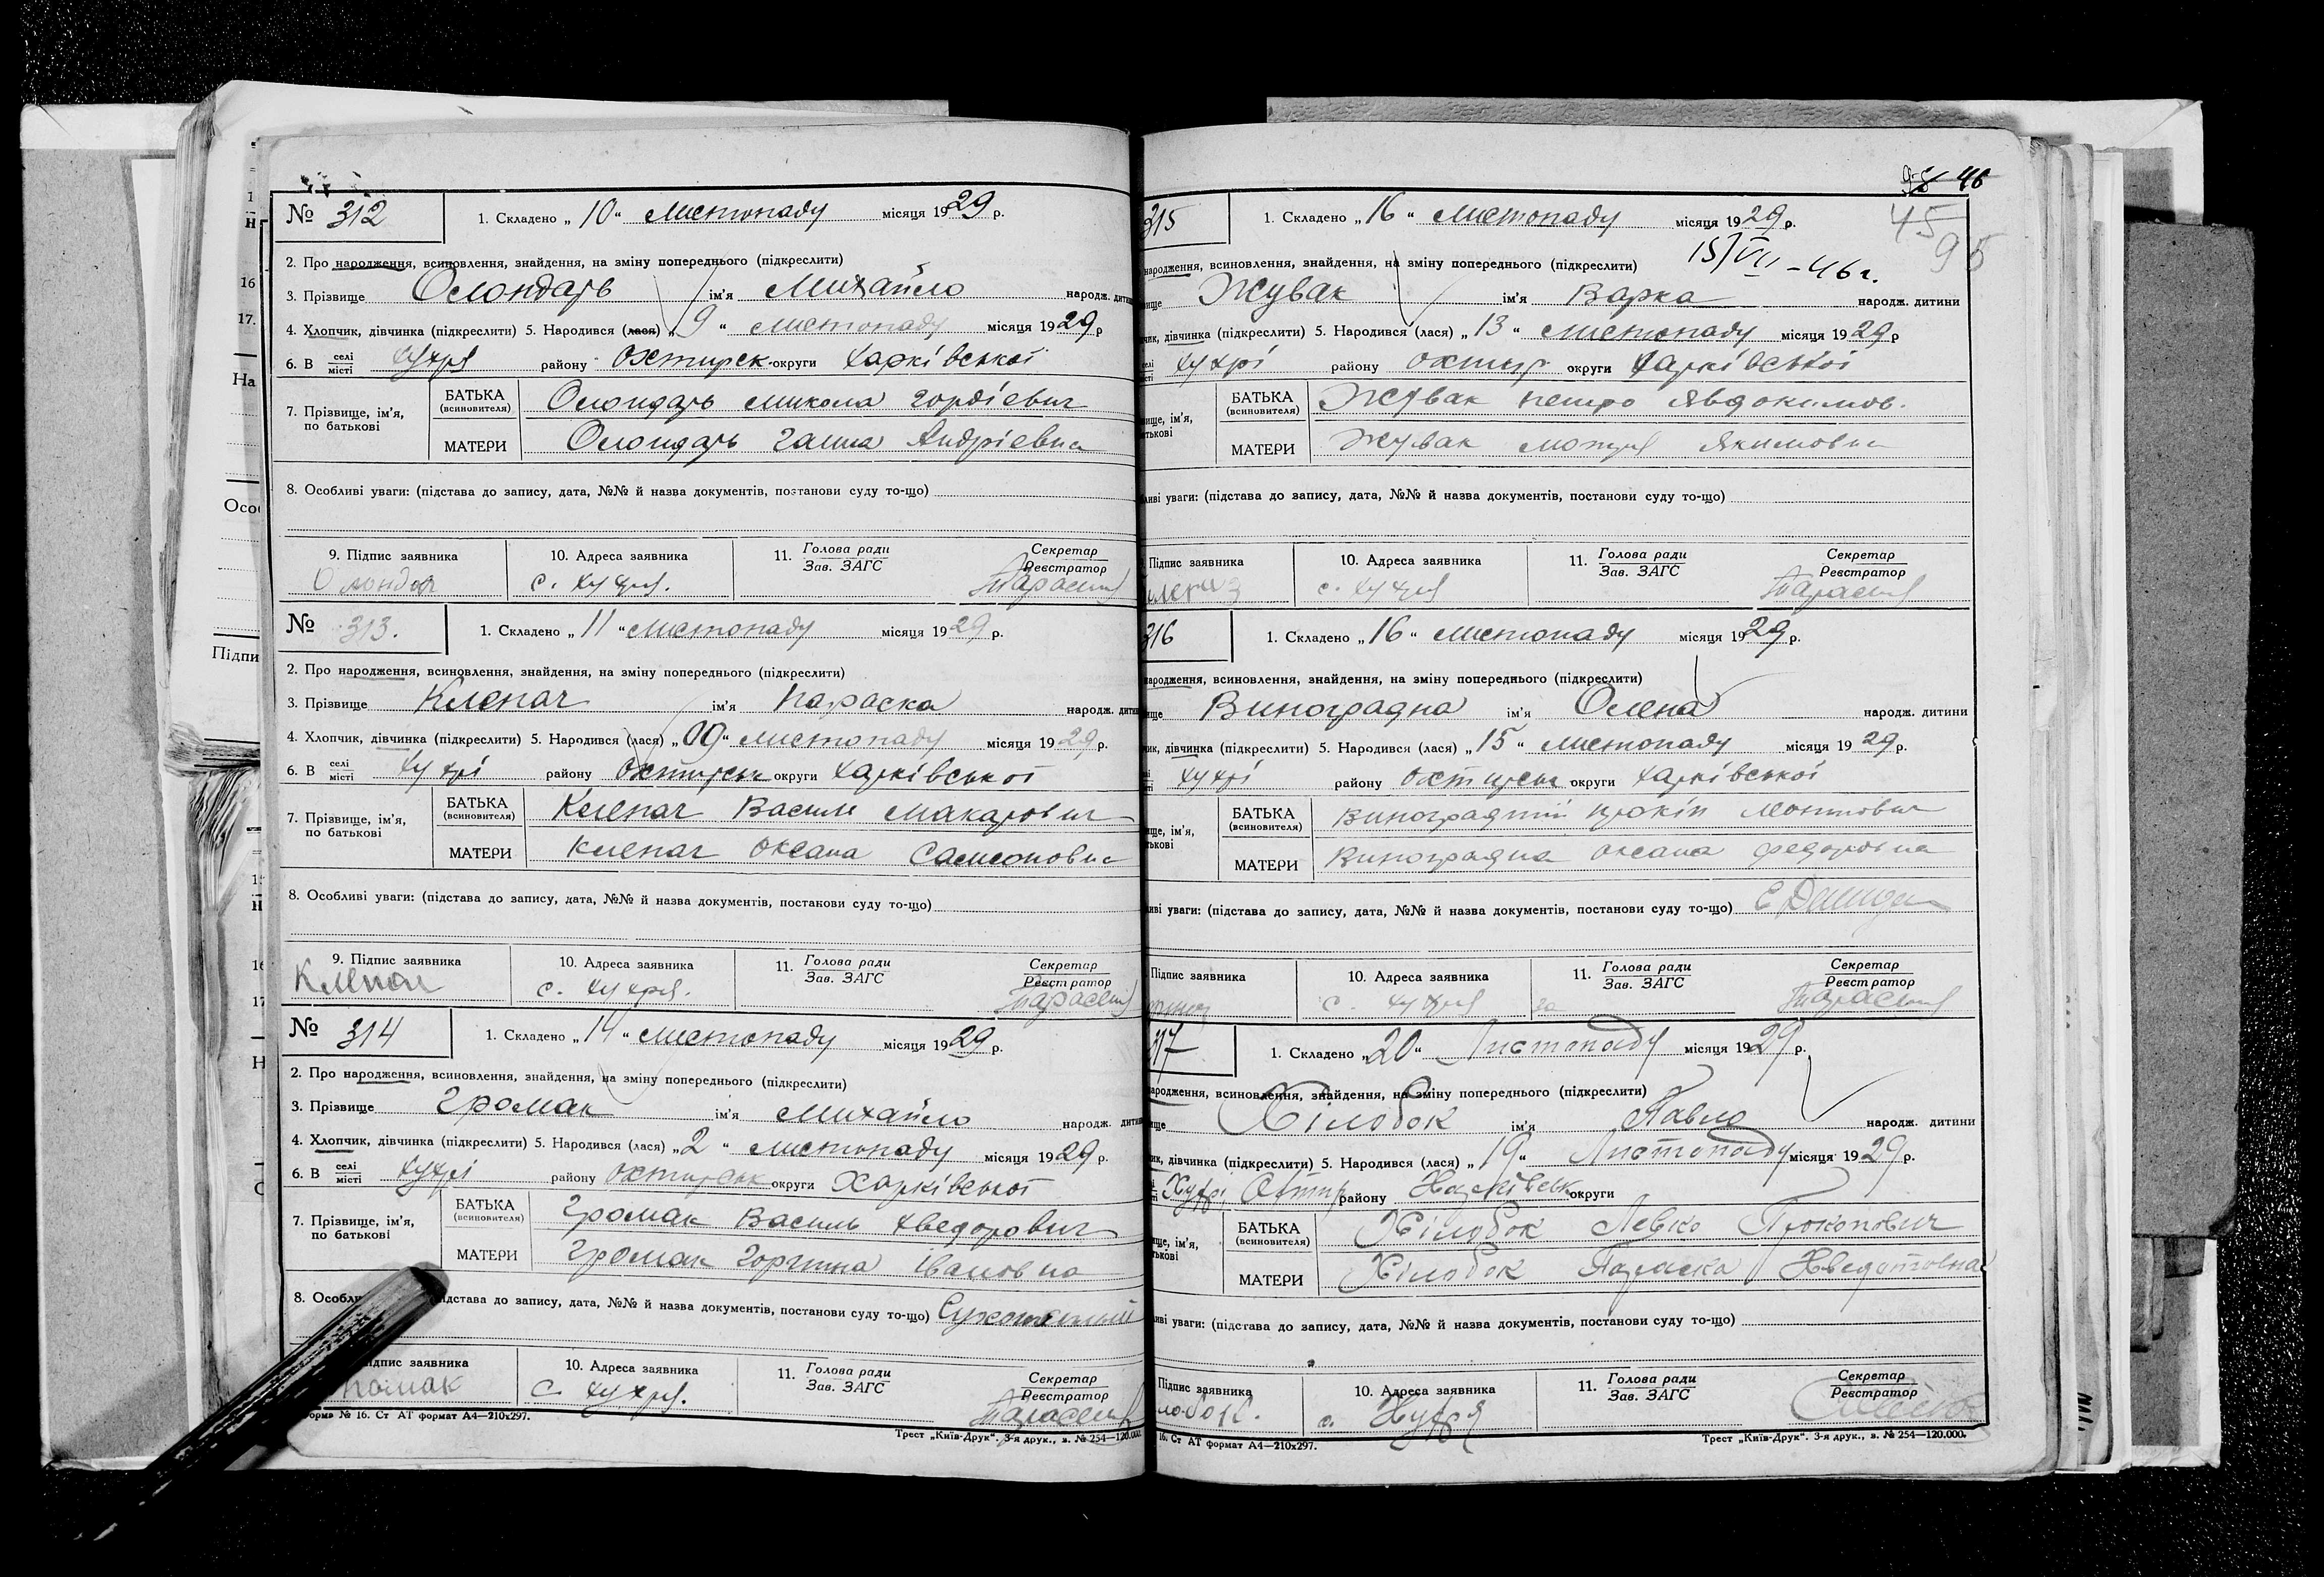 № 312
1. Складено „10“ листопаду місяця 1929 р.
2. Про народження, всиновлення, знайдення, на зміну попереднього (підкреслити)
3. Прізвище Олондарь ім'я Михайло народж. дитини
4. Хлопчик, дівчинка (підкреслити) 5. Народився (лася) „9“ листопаду місяця 1929 р
6. В селі місті Хухря району Охтирск округи Харківської
7. Прізвище, ім'я, по батькові
БАТЬКА (всиновителя) Олондарь Микола Гордіевич
МАТЕРИ Олондарь Ганна Андріевна
8. Особливі уваги: (підстава до запису, дата, №№ й назва документів, постанови суду то-що)
9. Підпис заявника 10. Адреса заявника 11. Голова ради Зав. ЗАГС Секретар Реєстратор
Олондар с. Хухря.
№ 313.
1. Складено „11“ листопаду місяця 1929 р.
2. Про народження, всиновлення, знайдення, на зміну попереднього (підкреслити)
3. Прізвище Клепач ім'я Параска народж. дитини
4. Хлопчик, дівчинка (підкреслити) 5. Народився (лася) „09“ листопаду місяця 1929 р.
6. В селі місті Хухрі району Охтирськ округи Харківської
7. Прізвище, ім'я, по батькові
БАТЬКА (всиновителя) Клепач Василь Макарович
МАТЕРИ Клепач Оксана Самсоновна
8. Особливі уваги: (підстава до запису, дата, №№ й назва документів, постанови суду то-що)
9. Підпис заявника 10. Адреса заявника 11. Голова ради Зав. ЗАГС Секретар Реєстратор
Клепач с. Хухря.
№ 314
1. Складено „14“ листопаду місяця 1929 р.
2. Про народження, всиновлення, знайдення, на зміну попереднього (підкреслити)
3. Прізвище Громак ім'я Михайло народж. дитини
4. Хлопчик, дівчинка (підкреслити) 5. Народився (лася) „2“ листопаду місяця 1929 р.
6. В селі місті Хухрі району Охтирськ округи Харківської
7. Прізвище, ім'я, по батькові
БАТЬКА (всиновителя) Громак Василь Хведорович
МАТЕРИ Громак Горпина Івановна
8. Особли підстава до запису, дата, №№ й назва документів, постанови суду то-що)
ідпис заявника 10. Адреса заявника 11. Голова ради Зав. ЗАГС Секретар Реєстратор
с. Хухря.
Форма № 16. Ст АТ формат А4—210х297.
Трест „Київ-Друк“. 3-я друк., в. № 254—120.000.
46
45
95
315
1. Складено „16“ листопаду місяця 1929 р.
народження, всиновлення, знайдення, на зміну попереднього (підкреслити) 15/VII–46 г.
ище Жувак ім'я Варка народж. дитини
чик, дівчинка (підкреслити) 5. Народився (лася) „13“ листопаду місяця 1929 р
селі місті Хухрі району Охтир округи Харківської
ище, ім'я, тькові
БАТЬКА (всиновителя) Жувак Петро Явдокимов.
МАТЕРИ Жувак Мотря Якимовна
ливі уваги: (підстава до запису, дата, №№ й назва документів, постанови суду то-що)
Підпис заявника 10. Адреса заявника 11. Голова ради Зав. ЗАГС Секретар Реєстратор
с. Хухря
316
1. Складено „16“ листопаду місяця 1929 р.
народження, всиновлення, знайдення, на зміну попереднього (підкреслити)
ище Виноградна ім'я Олена народж. дитини
чик, дівчинка (підкреслити) 5. Народився (лася) „15“ листопаду місяця 1929 р.
Хухрі району Охтирськ округи Харківської
ище, ім'я, тькові
БАТЬКА (всиновителя) Виноградний Прокіп
МАТЕРИ Виноградна Оксана Федоровна
ливі уваги: (підстава до запису, дата, №№ й назва документів, постанови суду то-що)
Підпис заявника 10. Адреса заявника 11. Голова ради Зав. ЗАГС Секретар Реєстратор
с. Хухря
317
1. Складено „20“ Листопаду місяця 1929 р.
народження, всиновлення, знайдення, на зміну попереднього (підкреслити)
ище Хілобок ім'я Павло народж. дитини
чик, дівчинка (підкреслити) 5. Народився (лася) „19“ Листопаду місяця 1929 р.
Хухрі Охтир району Харківськ округи
ище, ім'я, тькові
БАТЬКА (всиновителя) Хілобок Левко Прокопович
МАТЕРИ Хілобок Параска Хведотовна
ливі уваги: (підстава до запису, дата, №№ й назва документів, постанови суду то-що)
Підпис заявника 10. Адреса заявника 11. Голова ради Зав. ЗАГС Секретар Реєстратор
лобок. с. Хухря
16. Ст АТ формат А4—210х297.
Трест „Київ-Друк“. 3-я друк., в. № 254—120.000.